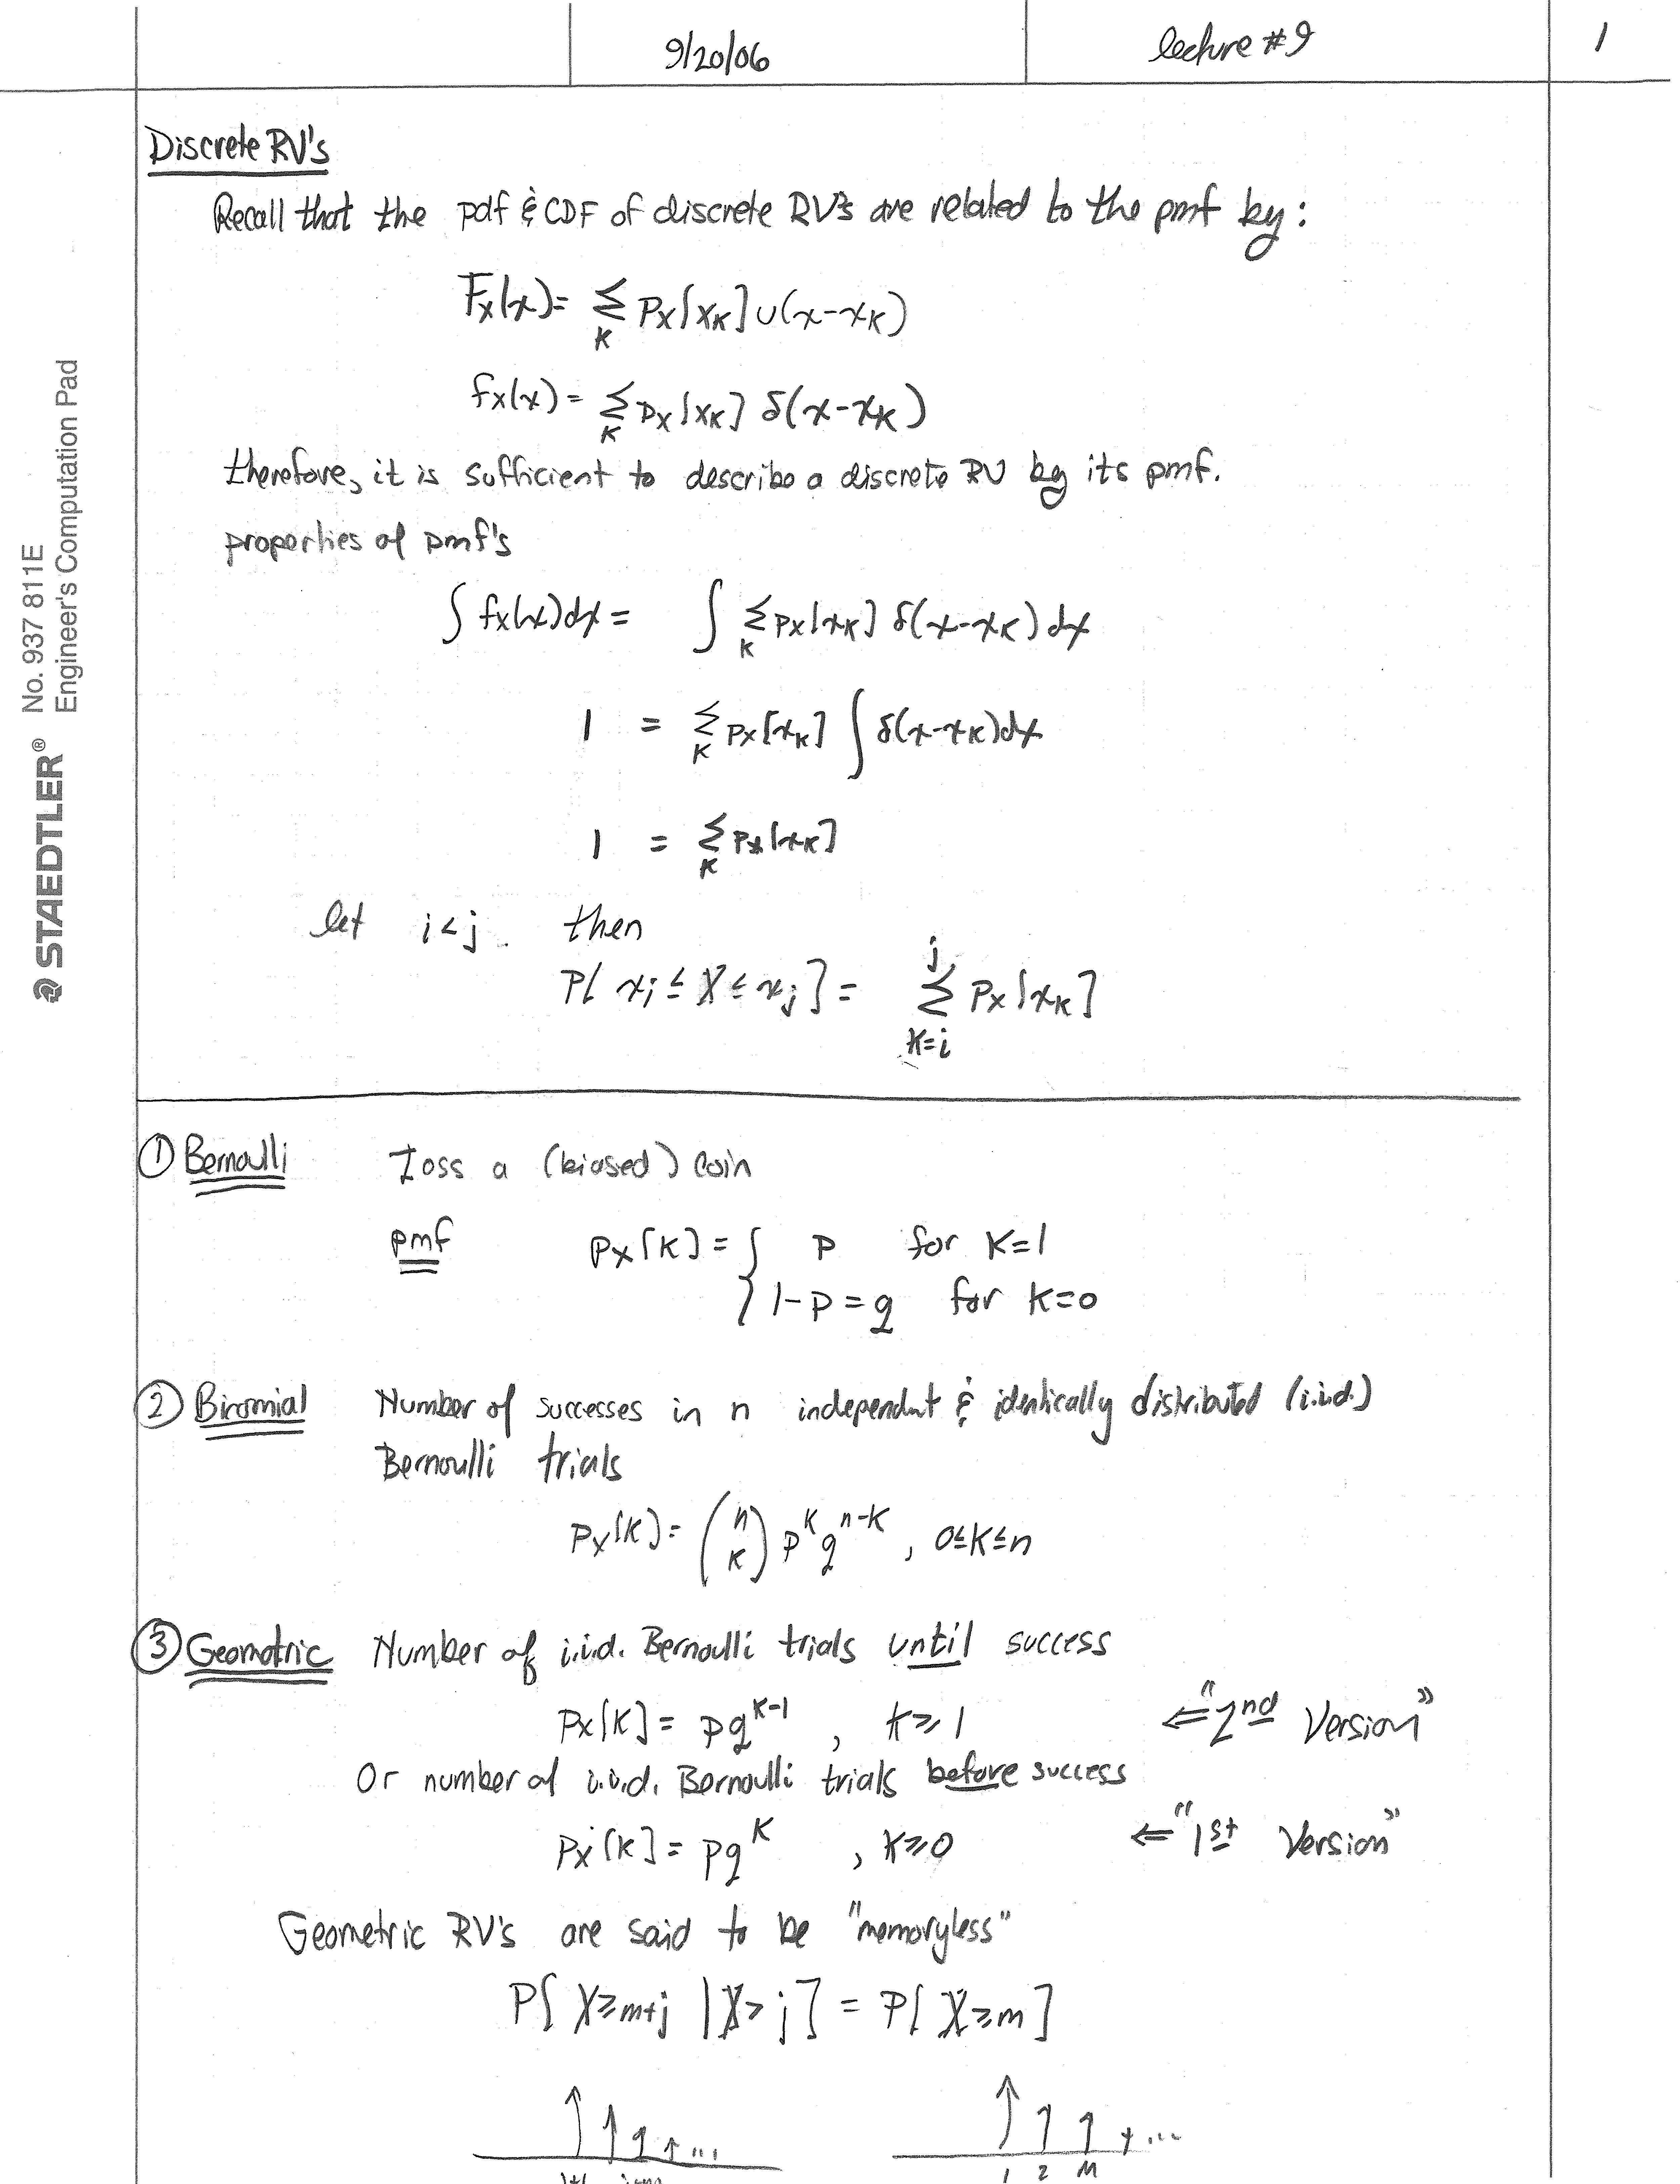 9/20/06 lecture #9 1
Discrete RV's
Recall that the pdf & CDF of discrete RV's are related to the pmf by:
F_X(x) = Σ_K P_X[x_K] u(x-x_K)
f_X(x) = Σ_K P_X[x_K] δ(x-x_K)
therefore, it is sufficient to describe a discrete RV by its pmf.
properties of pmf's
∫ f_X(x)dx = ∫ Σ_K P_X[x_K] δ(x-x_K) dx
1 = Σ_K P_X[x_K] ∫ δ(x-x_K)dx
1 = Σ_K P_X[x_K]
let i<j then
P[ x_i ≤ X ≤ x_j ] = Σ_{K=i}^{j} P_X[x_K]
① Bernoulli Toss a (biased) coin
pmf P_X[K] = { p for K=1
1-p = q for K=0
② Binomial Number of successes in n independent & identically distributed (i.i.d.)
Bernoulli trials
P_X[K] = (n K) p^K q^{n-K}, 0≤K≤n
③ Geometric Number of i.i.d. Bernoulli trials until success
P_X[K] = pq^{K-1}, K≥1 ⇐ "2nd Version"
Or number of i.i.d. Bernoulli trials before success
P_X[K] = pq^K, K≥0 ⇐ "1st Version"
Geometric RV's are said to be "memoryless"
P[ X≥m+j | X>j ] = P[ X≥m ]
...
+ ...
1 2 M
STAEDTLER® No. 937 811E
Engineer's Computation Pad